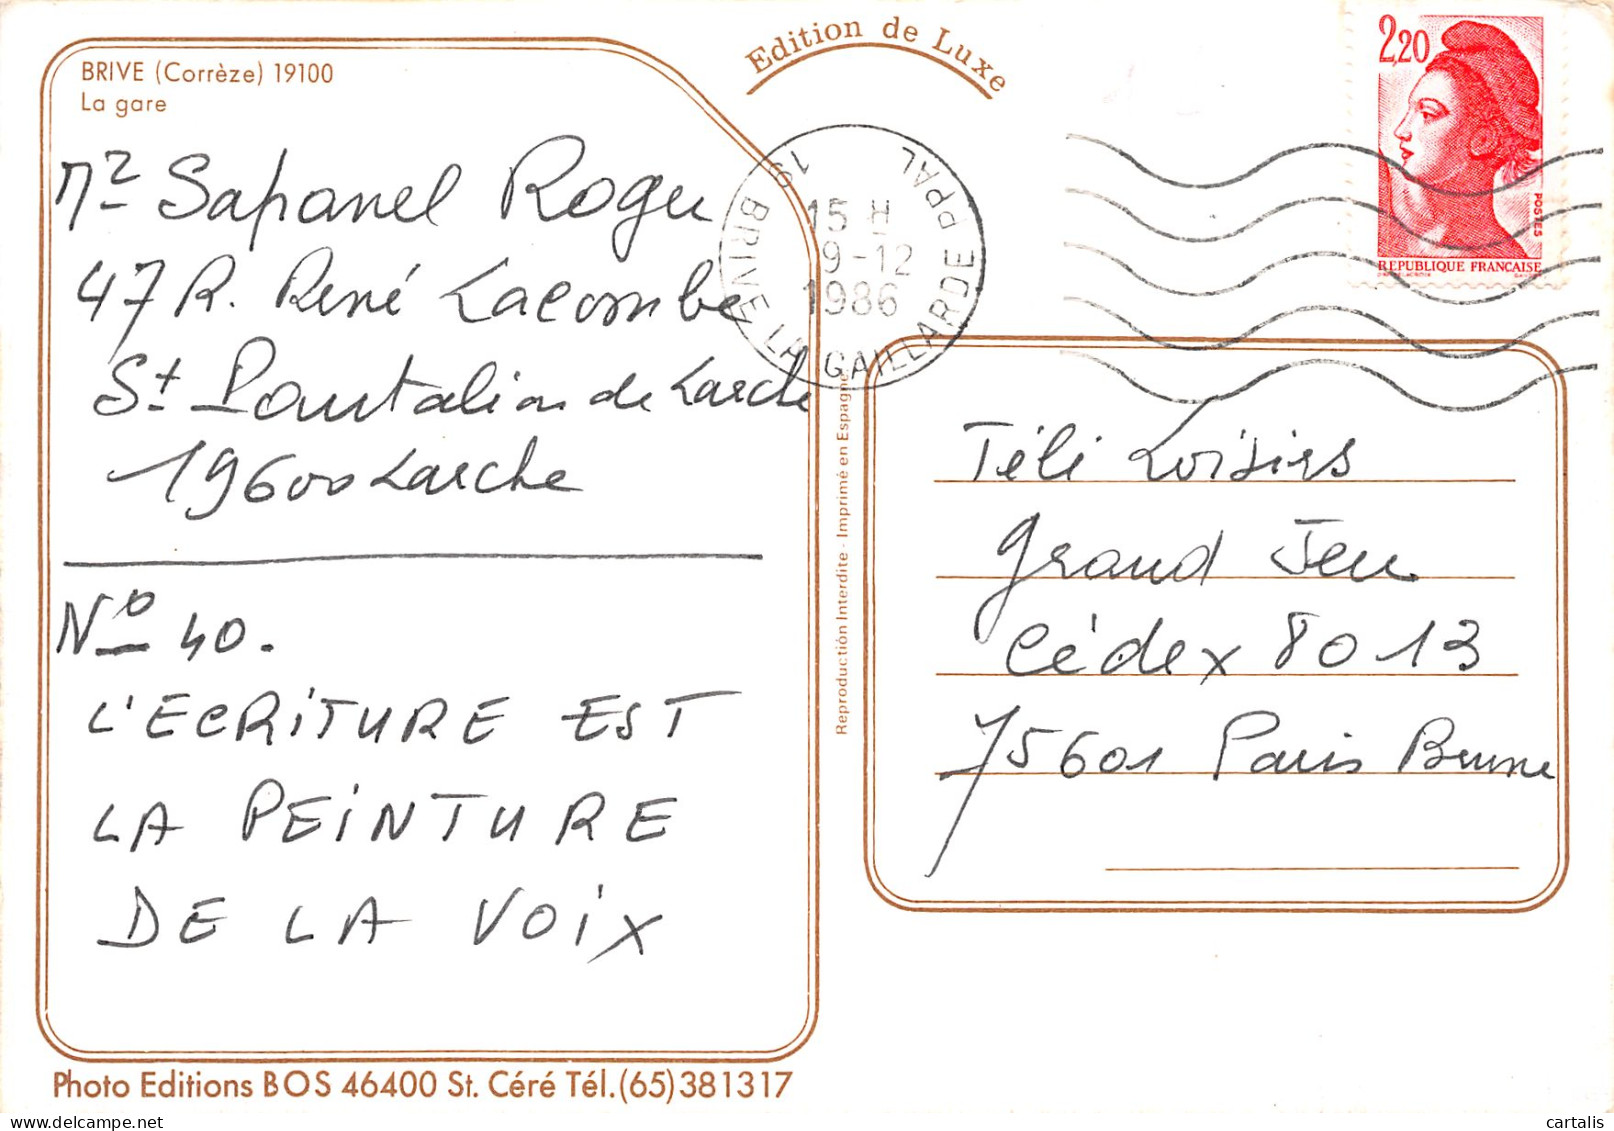 Edition de Luxe
BRIVE (Corrèze) 19100
La gare
Mr Sapanel Roger
47 R. René Lacombe
St Pantalion de Larche
19600 Larche
N° 40.
L'ECRITURE EST
LA PEINTURE
DE LA VOIX
Photo Editions BOS 46400 St. Céré Tél.(65)381317
Reproduction Interdite - Imprimé en Espagne
19 BRIVE LA GAILLARDE PPAL
15 H
9-12
1986
2,20
POSTES
REPUBLIQUE FRANÇAISE
Téli Loisirs
Grand Jeu
Cédex 8013
75601 Paris Brune
cartalis
www.delcampe.net